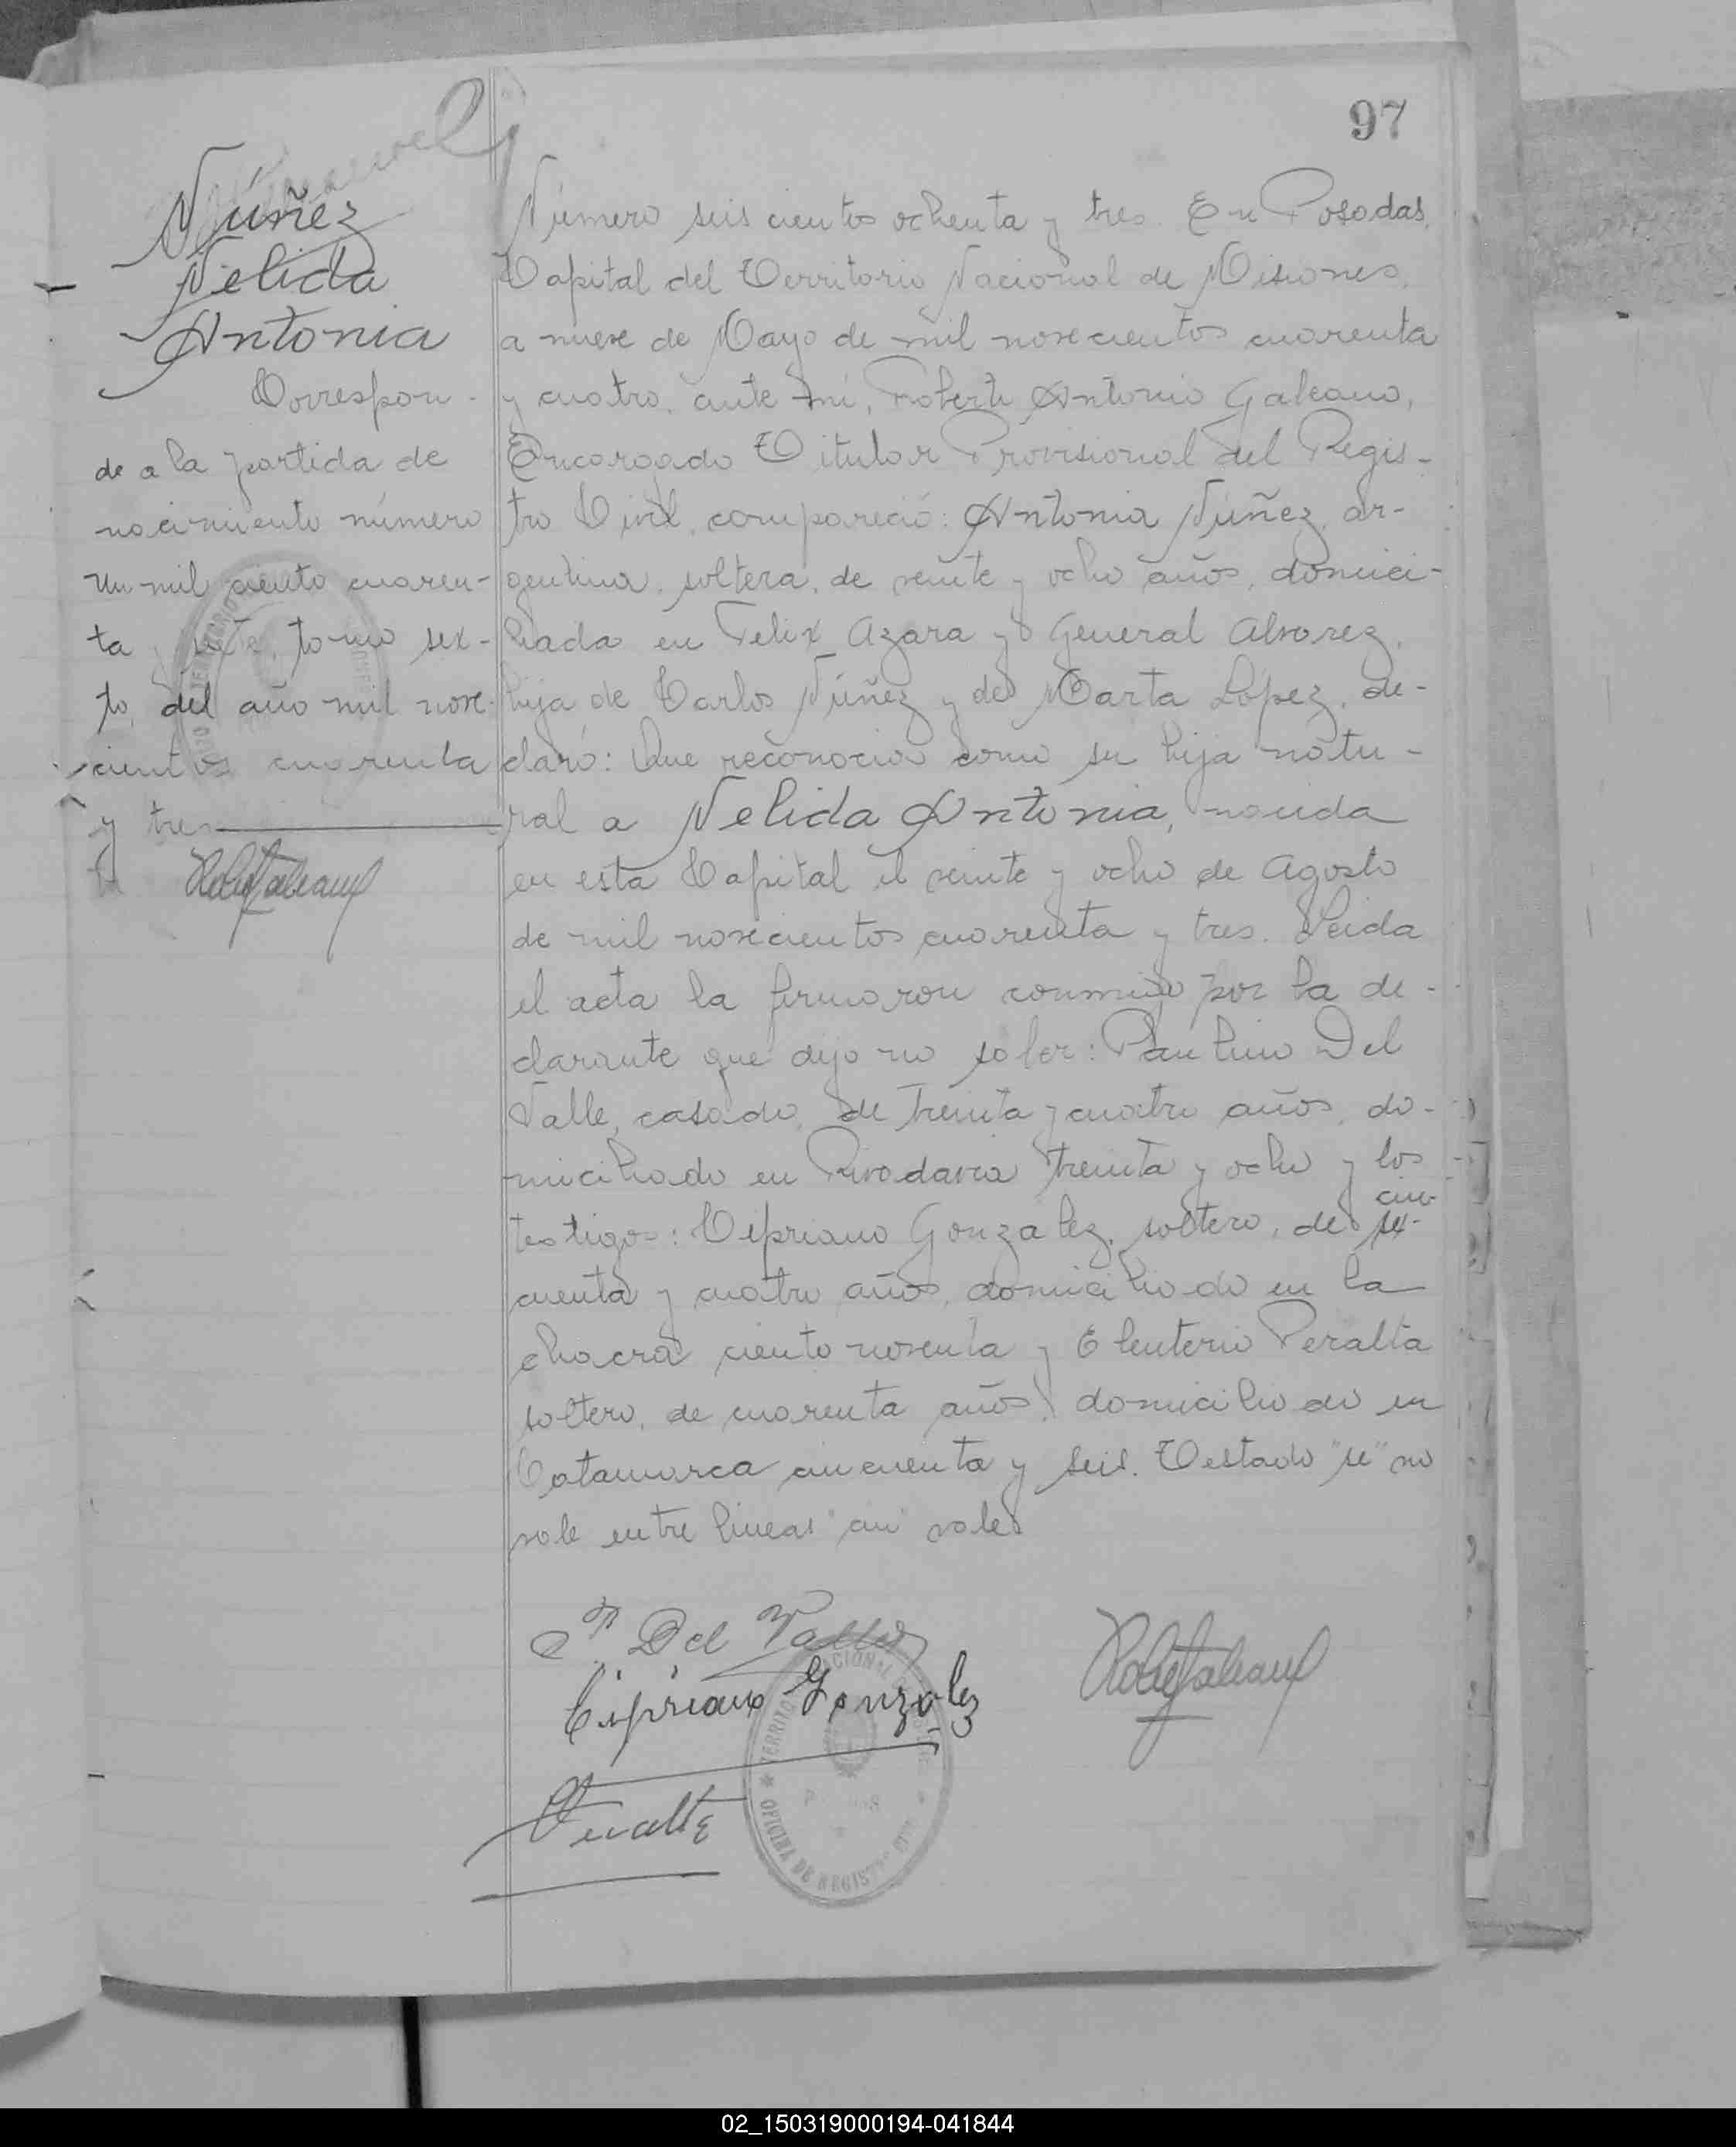 97
Núñez
Nelida
Antonia
Correspon-
de a la partida de
nacimiento número
un mil ciento cuaren-
ta y tomo sex-
to, del año mil nove-
cientos cuarenta
y tres
Número seis cientos ochenta y tres. En Posadas,
Capital del Territorio Nacional de Misiones,
a nueve de Mayo de mil novecientos cuarenta
y cuatro, ante mí, Roberto Antonio Galeano,
Encargado Titular Provisional del Regis-
tro Civil, compareció: Antonia Núñez, ar-
gentina, soltera, de veinte y ocho años, domici-
liada en Felix Azara y General Alvarez,
hija de Carlos Núñez y de Marta López, de-
claró: Que reconocia como su hija natu-
ral a Nelida Antonia, nacida
en esta Capital el veinte y ocho de Agosto
de mil novecientos cuarenta y tres. Leida
el acta la firmaron conmigo por la de-
clarante que dijo no saber: Paulino Del
Valle, casado, de treinta y cuatro años, do-
miciliado en Rivadavia treinta y ocho y los
cin-
testigos: Cipriano Gonzalez, soltero, de se-
cuenta y cuatro años, domiciliado en la
chacra ciento noventa y Eleuterio Peralta
soltero, de cuarenta años, domiciliado en
Catamarca cincuenta y seis. Testado "se" no
vale entre lineas "cin" vale
P. Del Valle
Cipriano Gonzalez
Peralta
TERRITORIO NACIONAL DE
OFICINA DE REGISTRO CIVIL
02_150319000194-041844